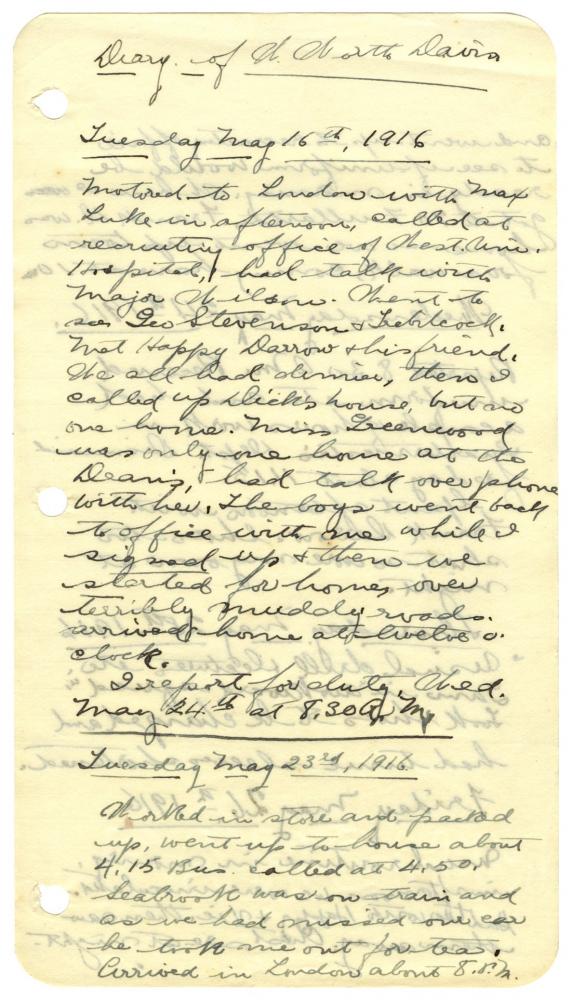 Diary of W. North Davis
Tuesday May 16th, 1916
Motored to London with Max
Luke in afternoon, called at
recruiting office of West. Uni.
Hospital, had talk with
Major Wilson. Went to
see Geo Stevenson & Trebilcock.
Met Happy Darrow & his friend.
We all had dinner, then I
called up Dick's house, but no
one home. Miss Greenwood
was only one home at the
Dean's, had talk over phone
with her. The boys went back
to office with me while I
signed up & then we
started for home, over
terribly muddy roads.
arrived home at twelve o.
clock.
I report for duty, Wed.
May 24th at 8.30 A.M.
Tuesday May 23rd, 1916
Worked in store and packed
up, went up to house about
4.15 Bus. called at 4.50.
Seabrook was on train and
as we had missed one car
he took me out for tea.
Arrived in London about 8.P.M.